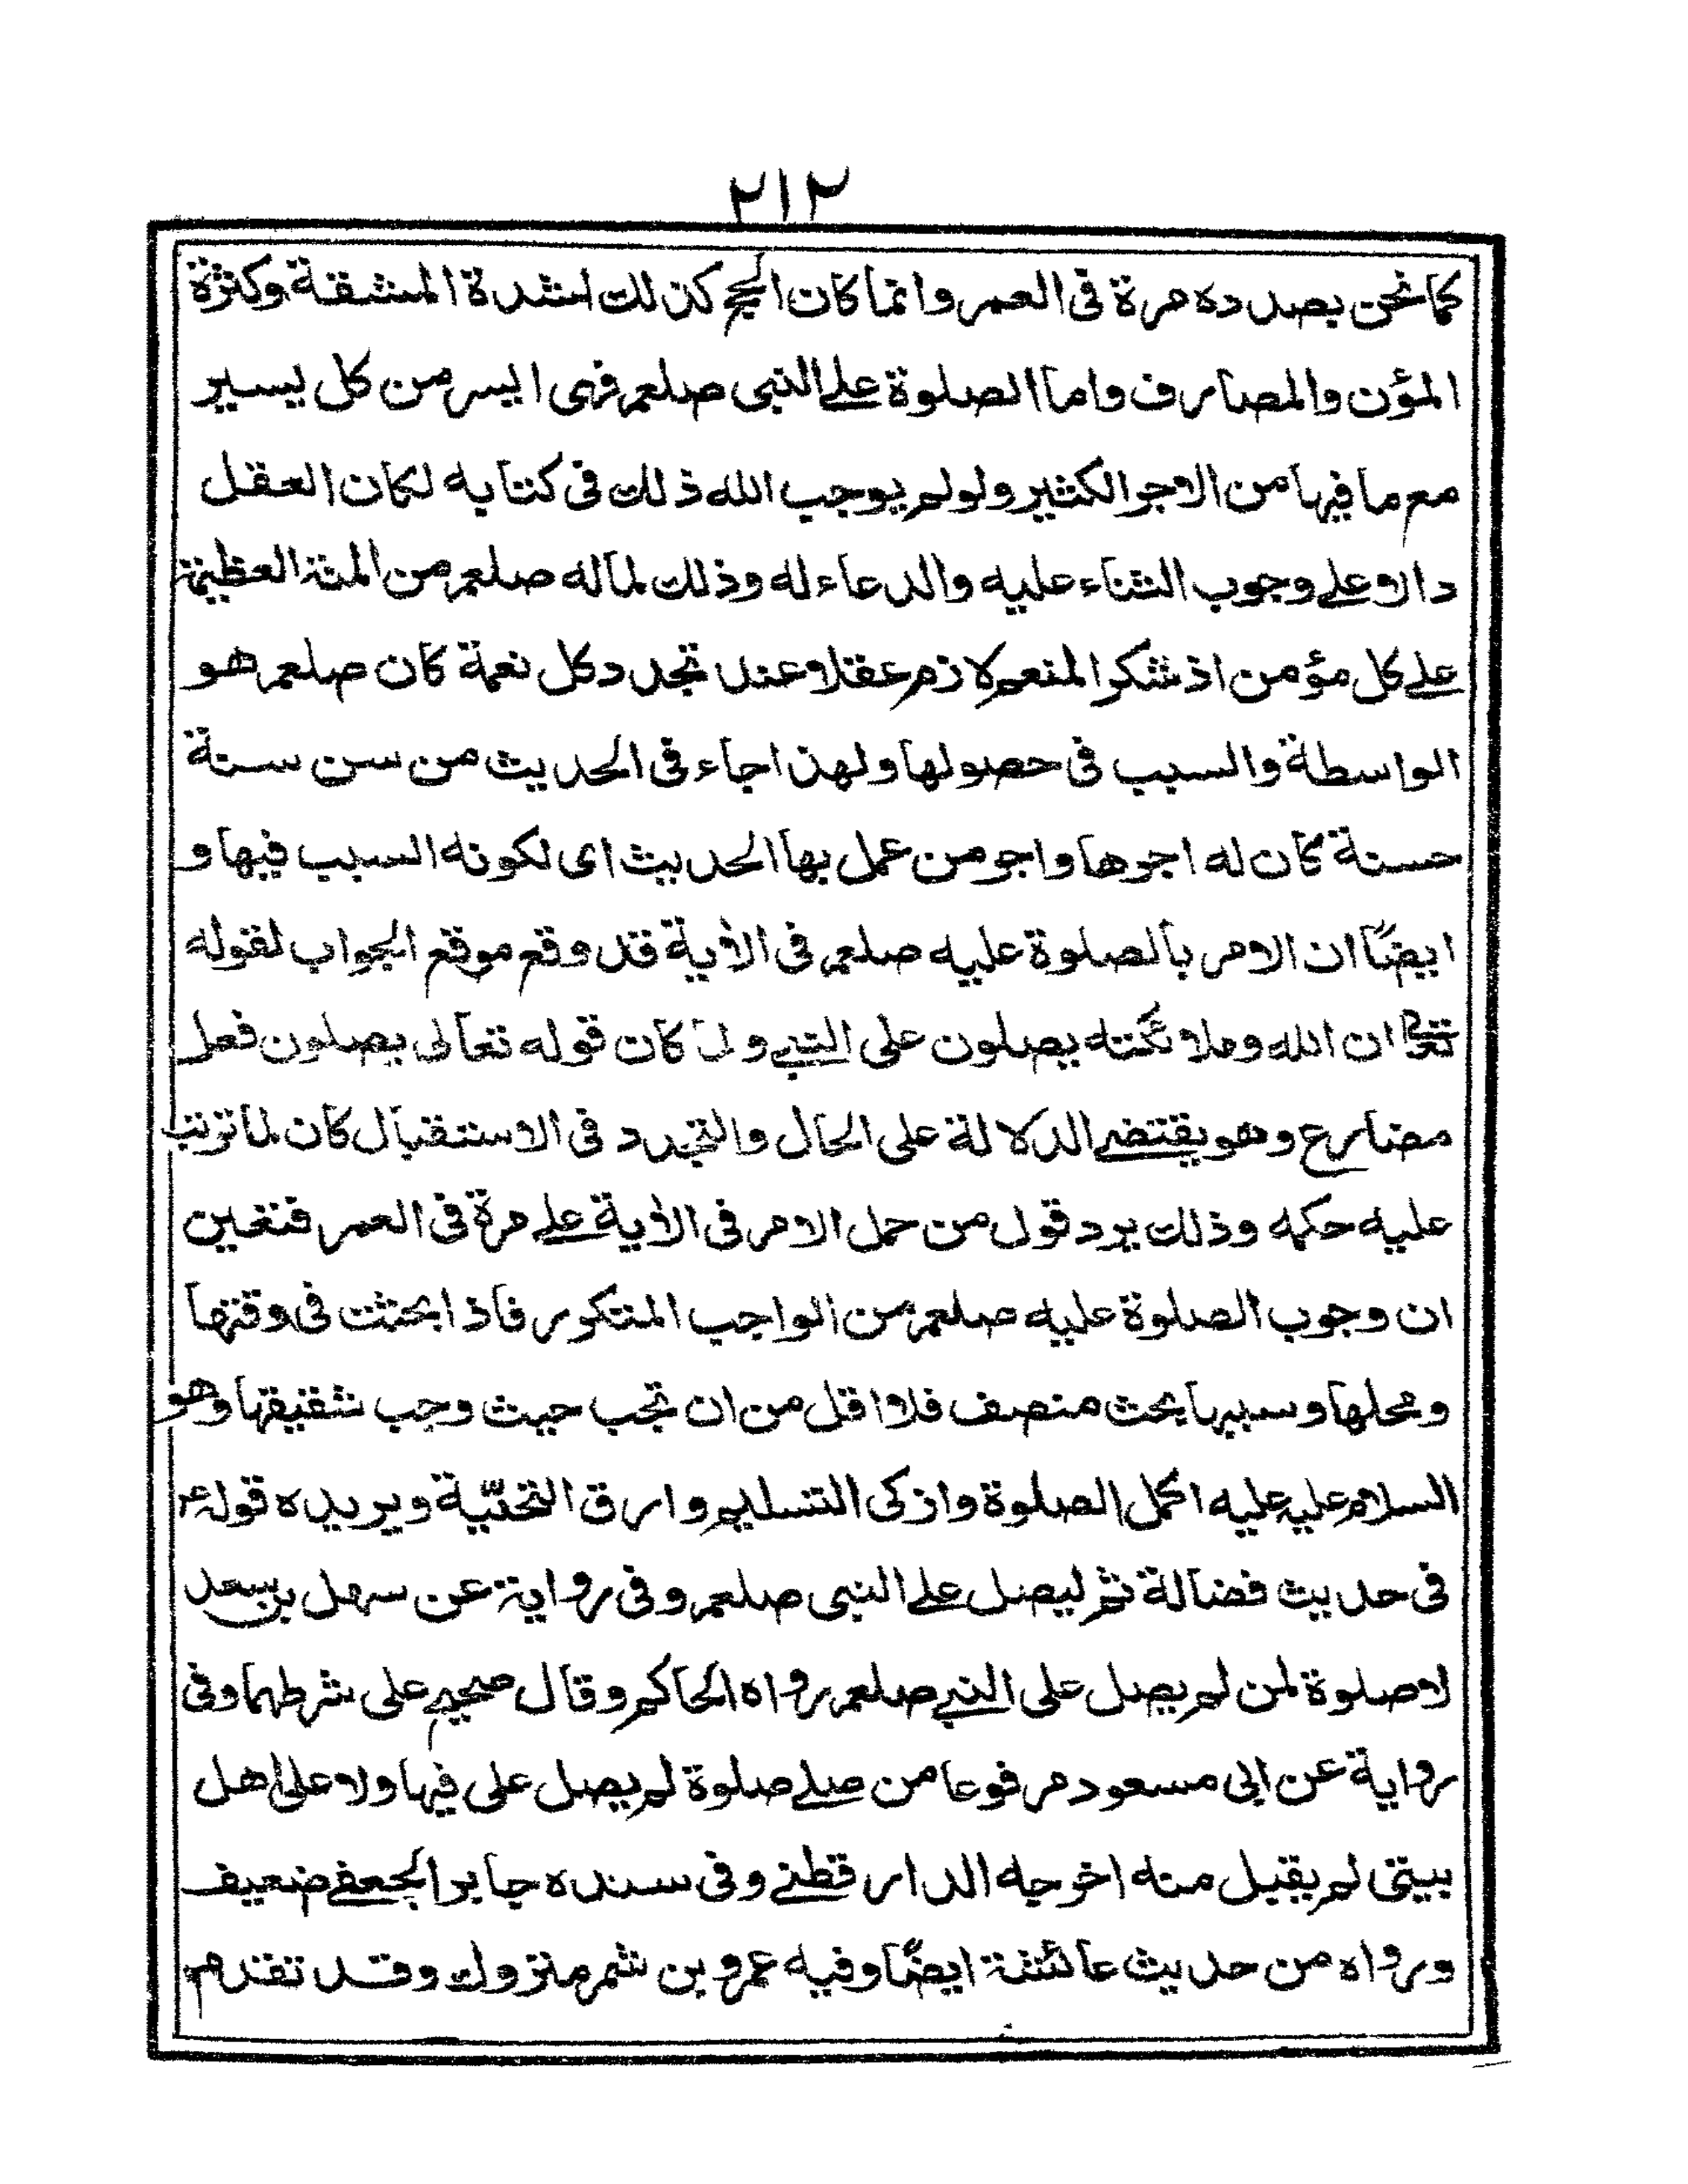 ٢١٢
كما نحن بصدده مرة فى العمر وانما كان الحج كذلك لشدة المشقة وكثرة
المؤن والمصارف واما الصلوة على النبى صلعم فهى ايسر من كل يسير
مع ما فيها من الاجر الكثير ولو لم يوجب الله ذلك فى كتابه لكان العقل
دالا على وجوب الثناء عليه والدعاء له وذلك لما له صلعم من المنة العظيمة
على كل مؤمن اذ شكر المنعم لازم عقلا عند تجدد كل نعمة كان صلعم هو
الواسطة والسبب فى حصولها ولهذا جاء فى الحديث من سن سنة
حسنة كان له اجرها واجر من عمل بها الحديث اى لكونه السبب فيها و
ايضًا ان الامر بالصلوة عليه صلعم فى الأية قد وقع موقع الجواب لقوله
تعالى ان الله وملائكته يصلون على النبى ولما كان قوله تعالى يصلون فعل
مضارع وهو يقتضى الدلالة على الحال والتجدد فى الاستقبال كان لما ترتب
عليه حكمه وذلك يرد قول من حمل الامر فى الأية على مرة فى العمر فتعين
ان وجوب الصلوة عليه صلعم من الواجب المتكرر فاذا بحثت فى وقتها
ومحلها وسبرها بحث منصف فلا اقل من ان تجب حيث وجب شقيقها وهو
السلام عليه عليه اكمل الصلوة وازكى التسليم وارق التحيّة ويريده قوله ع
فى حديث فضالة ثم ليصل على النبى صلعم وفى رواية عن سهل بن سعد
لا صلوة لمن لم يصل على النبى صلعم رواه الحاكم وقال صحيح على شرطهما وفى
رواية عن ابى مسعود مرفوعا من صلى صلوة لم يصل على فيها ولا على اهل
بيتى لم يقبل منه اخرجه الدارقطنى وفى سنده جابر الجعفى ضعيف
ورواه من حديث عائشة ايضًا وفيه عمرو بن شمر متروك وقد تقدم